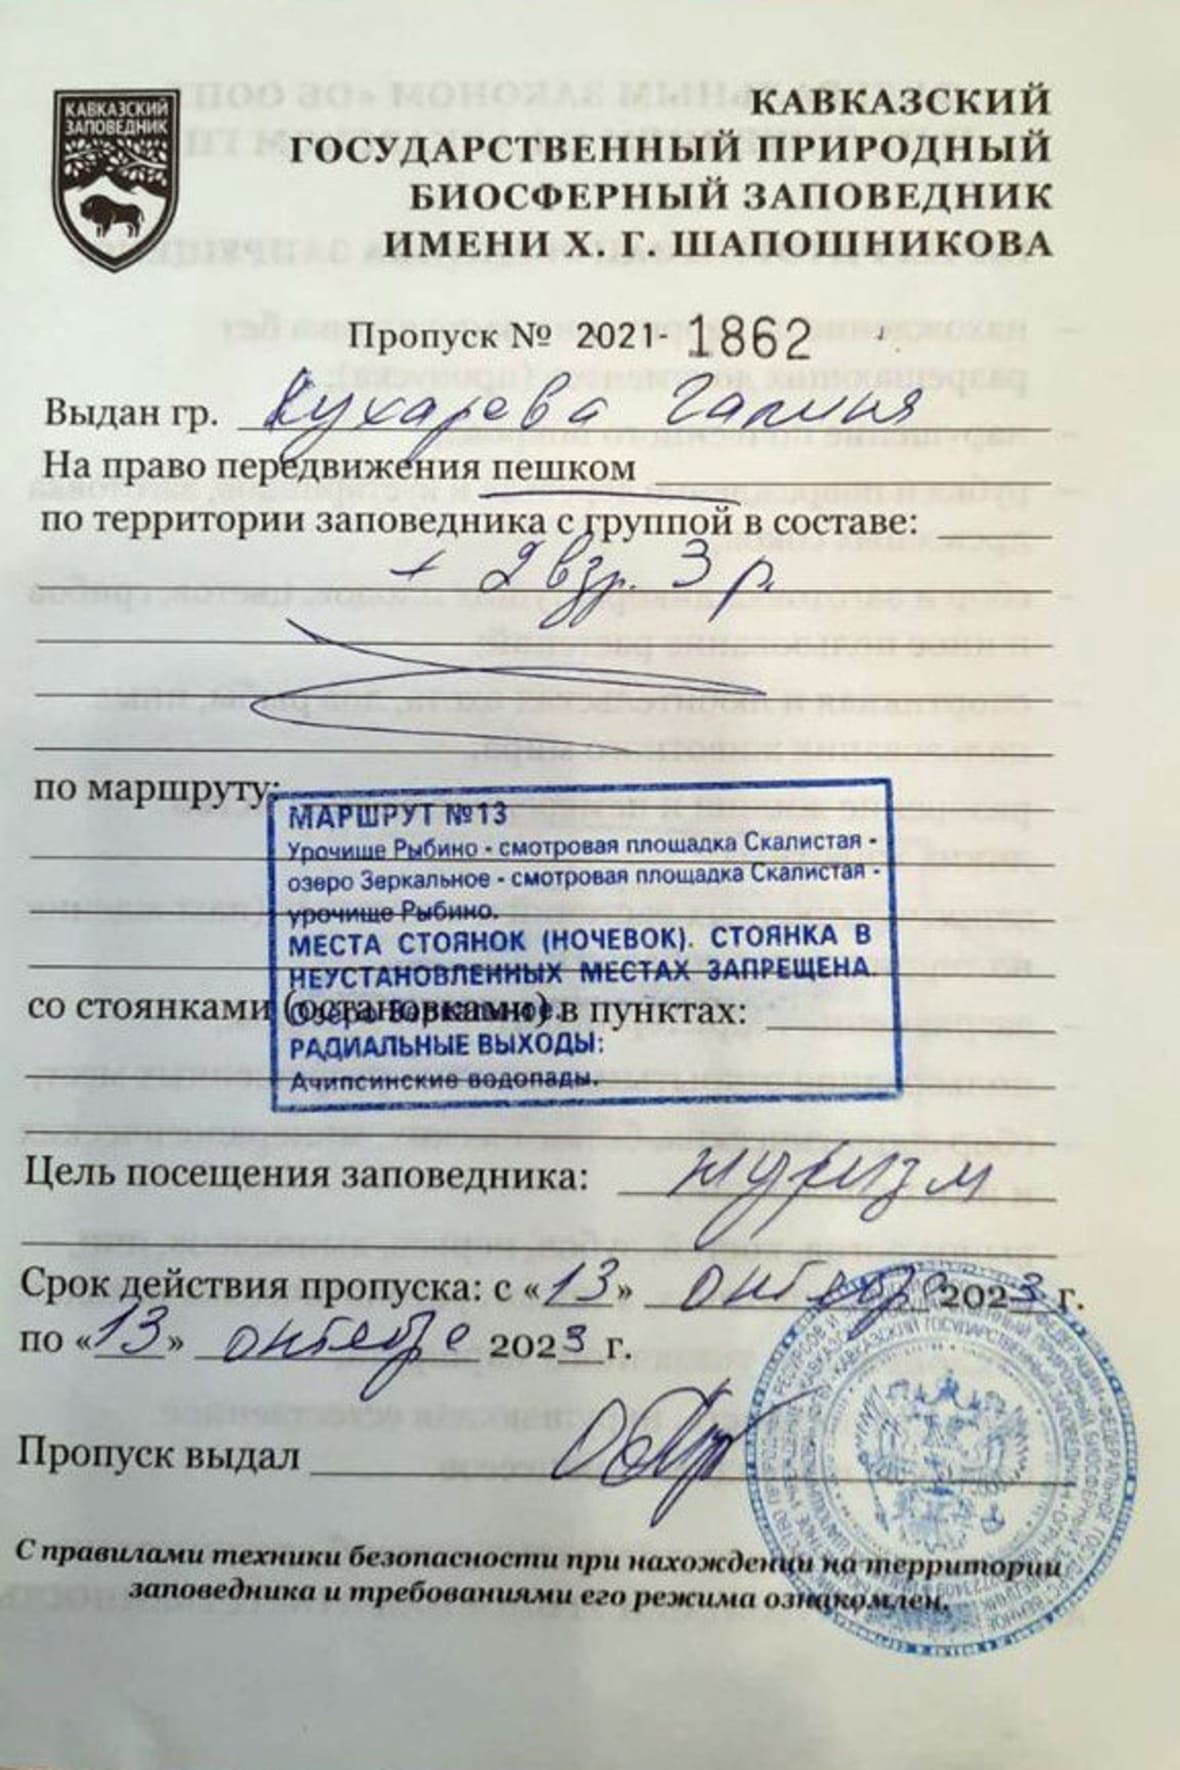 КАВКАЗСКИЙ
ЗАПОВЕДНИК
КАВКАЗСКИЙ
ГОСУДАРСТВЕННЫЙ ПРИРОДНЫЙ
БИОСФЕРНЫЙ ЗАПОВЕДНИК
ИМЕНИ Х. Г. ШАПОШНИКОВА
Пропуск № 2021- 1862
Выдан гр. Кухарева Галина
На право передвижения пешком
по территории заповедника с группой в составе:
+ 2 взр. 3 р.
по маршруту:
МАРШРУТ №13
Урочище Рыбино - смотровая площадка Скалистая -
озеро Зеркальное - смотровая площадка Скалистая -
урочище Рыбино.
МЕСТА СТОЯНОК (НОЧЕВОК). СТОЯНКА В
НЕУСТАНОВЛЕННЫХ МЕСТАХ ЗАПРЕЩЕНА.
Озеро Зеркальное.
со стоянками (остановками) в пунктах:
РАДИАЛЬНЫЕ ВЫХОДЫ:
Ачипсинские водопады.
Цель посещения заповедника: туризм
Срок действия пропуска: с «13» октября 2023 г.
по «13» октября 2023 г.
Пропуск выдал
С правилами техники безопасности при нахождении на территории
заповедника и требованиями его режима ознакомлен.